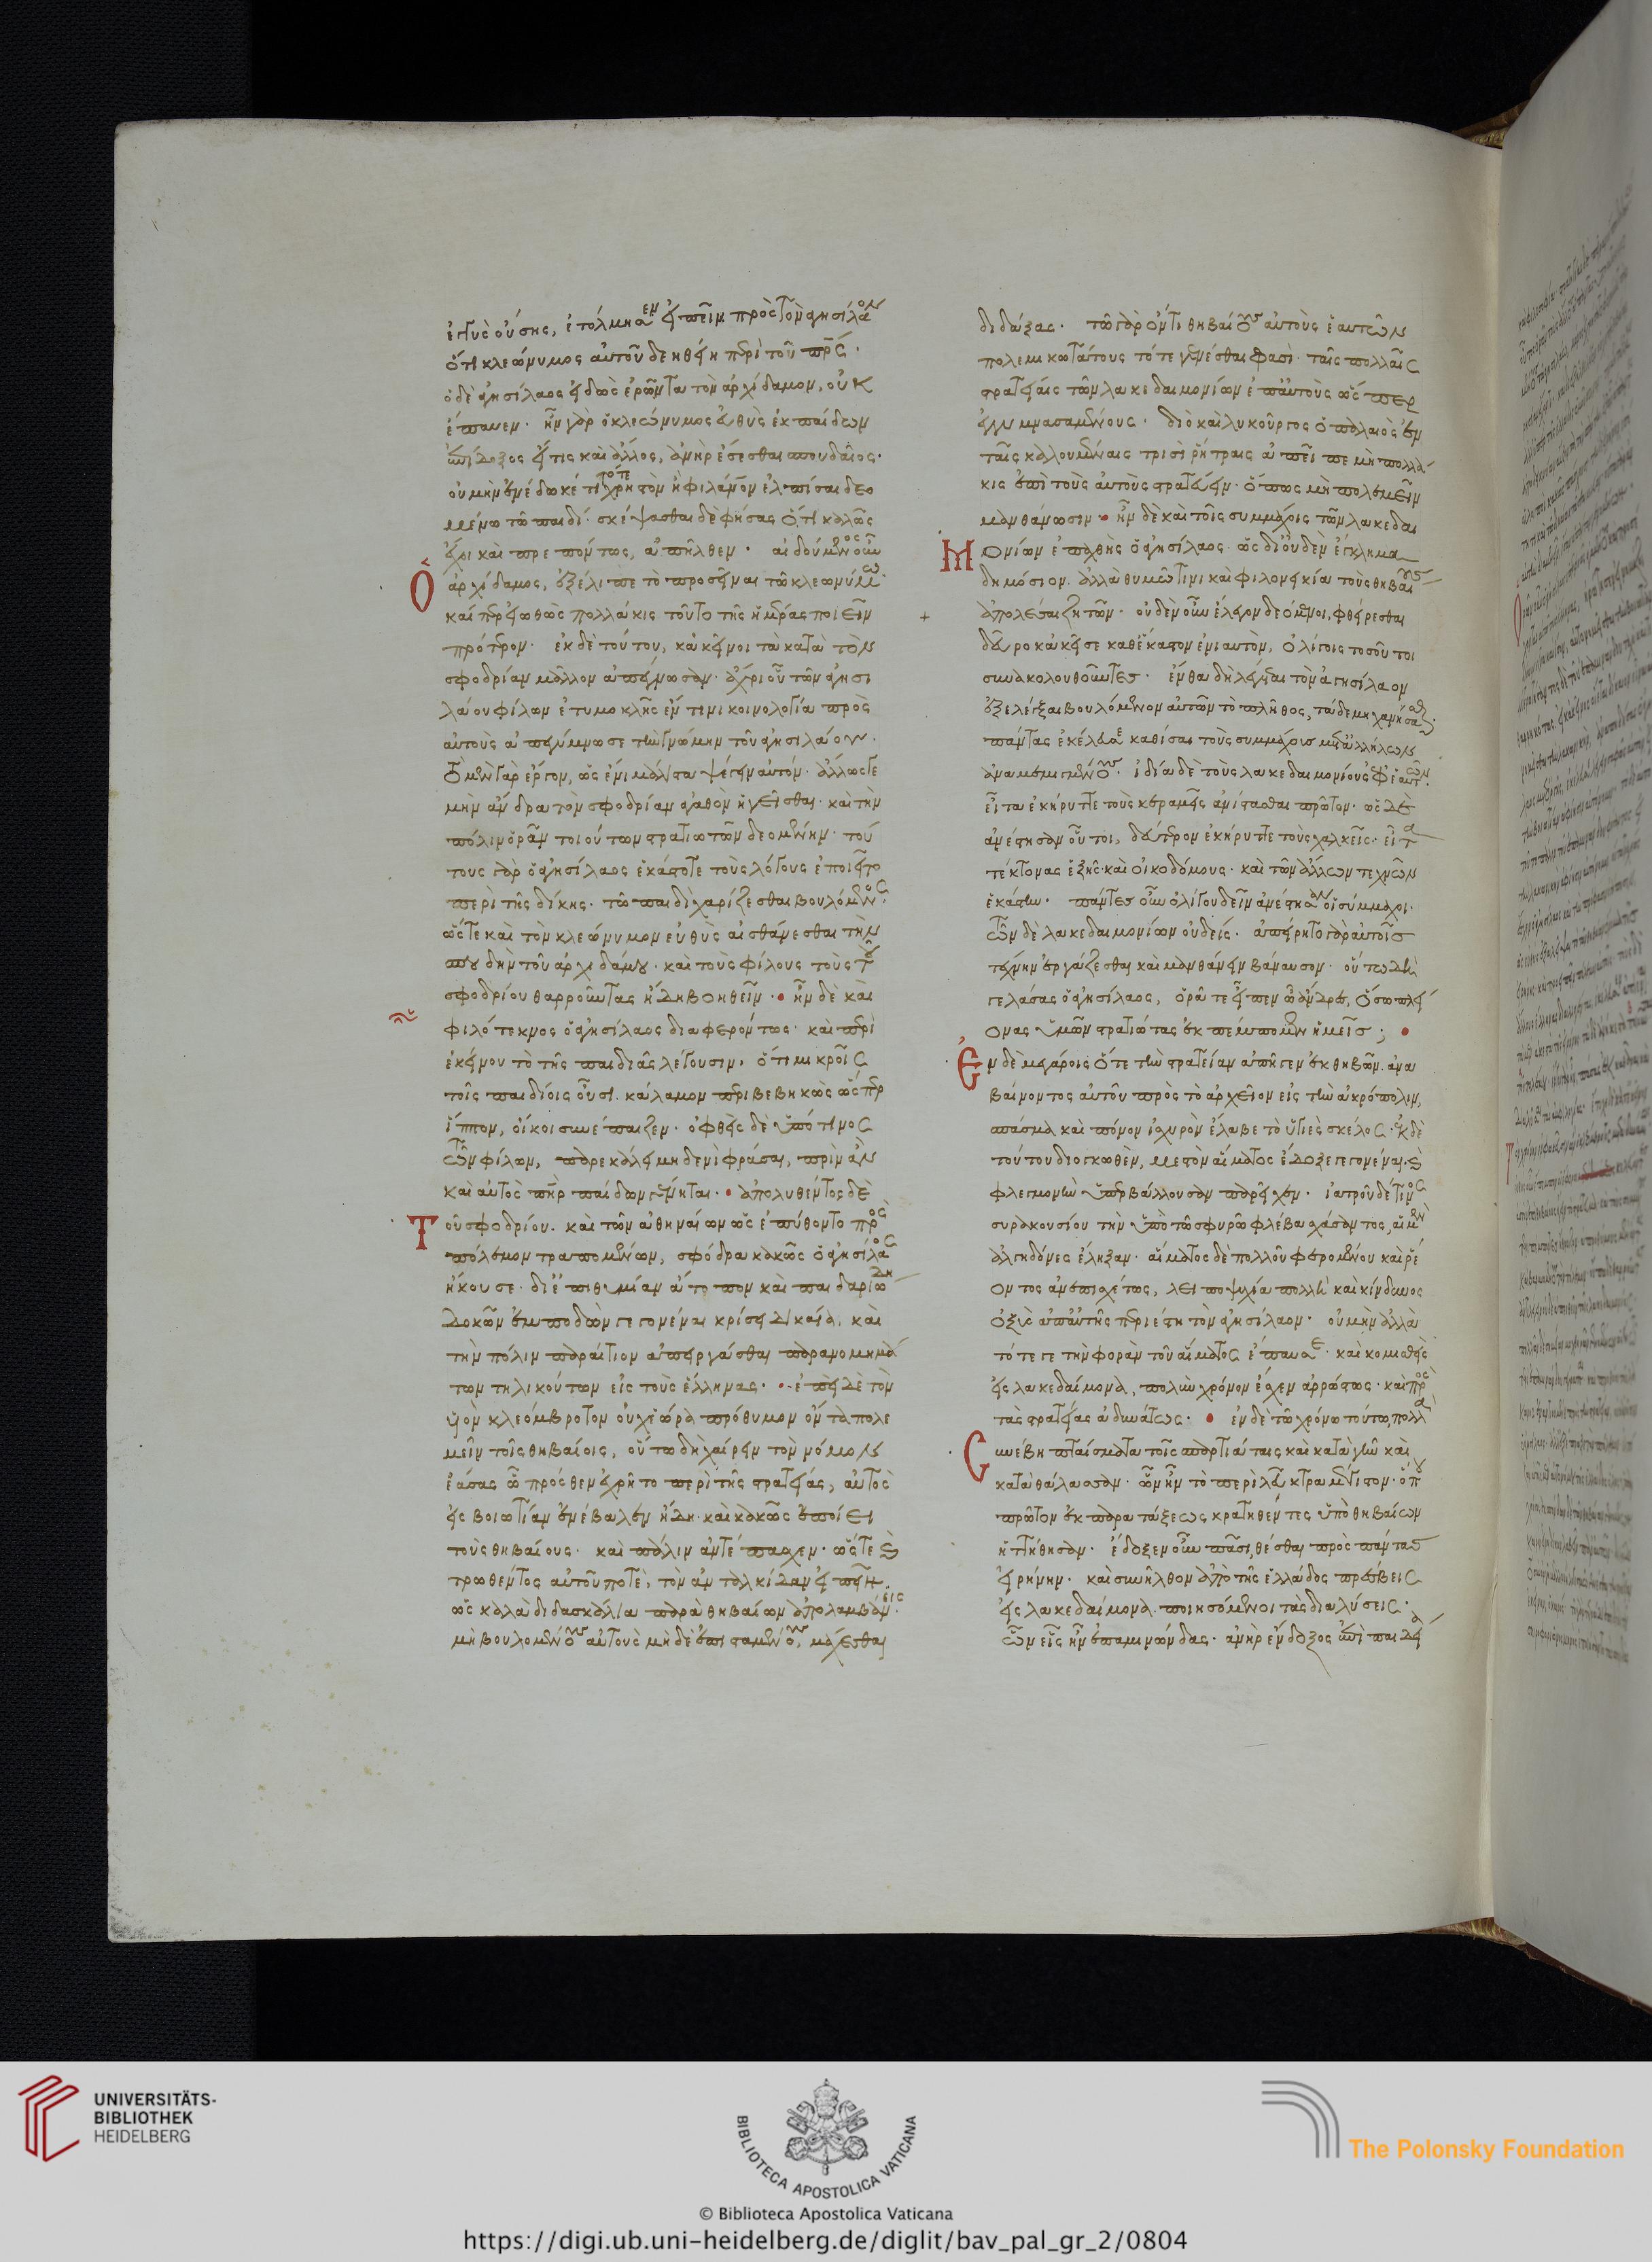 ἐγγὺς οὔσης, ἐτόλμησεν εἰπεῖν πρὸς τὸν ἀγησίλαον
ὅτι κλεώνυμος αὐτοῦ δεηθείη περὶ τοῦ πρς.
ὁ δὲ ἀγησίλαος εἰδὼς ἐρῶντα τὸν ἀρχίδαμον, οὐκ
ἔπαυεν. ἦν γὰρ ὁ κλεώνυμος εὐθὺς ἐκ παίδων
ἐπίδοξος εἴ τις καὶ ἄλλος, ἀνὴρ ἔσεσθαι σπουδαῖος.
οὐ μὴν ἐνέδωκέ τι τότε χρηστὸν ἢ φιλάνον ἐλπίσαι δεο
μένω τῶ παιδί. σκέψασθαι δὲ φήσας ὅτι καλῶς
ἔχοι καὶ πρεπόντως, ἀπῆλθεν. αἰδούμενος οὖν
ὁ ἀρχίδαμος, ἐξέλιπε τὸ προσιέναι τῶ κλεωνύμω.
καίπερ εἰωθὼς πολλάκις τοῦτο τῆς ἡμέρας ποιεῖν
πρότερον. ἐκ δὲ τούτου, κἀκεῖνοι τὰ κατὰ τὸν
σφοδρίαν μᾶλλον ἀπέγνωσαν. ἄχρι οὗ τῶν ἀγησι
λάου φίλων ἐτυμοκλῆς ἔν τινι κοινολογία πρὸς
αὐτοὺς ἀπεγύμνωσε τὴν γνώμην τοῦ ἀγησιλάου.
τὸ μὲν γὰρ ἔργον, ὡς ἔνι μάλιστα ψέγειν αὐτόν. ἄλλως γε
μὴν ἄνδρα τὸν σφοδρίαν ἀγαθὸν ἡγεῖσθαι. καὶ τὴν
πόλιν ὁρᾶν τοιούτων στρατιωτῶν δεομένην. τού
τους γὰρ ὁ ἀγησίλαος ἑκάστοτε τοὺς λόγους ἐποιεῖτο
περὶ τῆς δίκης. τῶ παιδὶ χαρίζεσθαι βουλόμενος.
ὥστε καὶ τὸν κλεώνυμον εὐθὺς αἰσθάνεσθαι τὴν
σπουδὴν τοῦ ἀρχιδάμου. καὶ τοὺς φίλους τοὺς τοῦ
σφοδρίου θαρροῦντας ἤδη βοηθεῖν. ἦν δὲ καὶ
φιλότεκνος ὁ ἀγησίλαος διαφερόντως. καὶ περὶ
ἐκείνου τὸ τῆς παιδιᾶς λέγουσιν, ὅτι μικροῖς
τοῖς παιδίοις οὖσι. κάλαμον περιβεβηκὼς ὥσπερ
ἵππον, οἴκοι συνέπαιζεν. ὀφθεὶς δὲ ὑπό τινος
τῶν φίλων, παρεκάλει μηδενὶ φράσαι, πρὶν ἂν
καὶ αὐτὸς πὴρ παίδων γένηται. ἀπολυθέντος δὲ
τοῦ σφοδρίου. καὶ τῶν ἀθηναίων ὡς ἐπύθοντο πρὸς
πόλεμον τραπομένων, σφόδρα κακῶς ὁ ἀγησίλαος
ἤκουσε. δι' ἐπιθυμίαν ἄτοπον καὶ παιδαριώδη
δοκῶν ἐμποδὼν γεγονέναι κρίσει δικαία. καὶ
τὴν πόλιν παραίτιον ἀπειργάσθαι παρανομημά
των τηλικούτων εἰς τοὺς ἕλληνας. ἐπεὶ δὲ τὸν
κλεόμβροτον οὐχ ἑώρα πρόθυμον ὄντα πολε
μεῖν τοῖς θηβαίοις, οὕτω δὴ χαίρειν τὸν νόμον
ἐάσας ὧ πρόσθεν ἐχρῆτο περὶ τῆς στρατείας, αὐτὸς
εἰς βοιωτίαν ἐνέβαλεν ἤδη. καὶ κακῶς ἐποίει
τοὺς θηβαίους. καὶ πάλιν ἀντέπασχεν. ὥστε καὶ
τρωθέντος αὐτοῦ ποτὲ, τὸν ἀνταλκίδαν εἰπεῖν.
ὡς καλὰ διδασκάλια παρὰ θηβαίων ἀπολαμβάνεις.
μὴ βουλομένους αὐτοὺς μὴ δὲ ἐπισταμένους, μάχεσθαι
διδάξας. τῶ γὰρ ὄντι θηβαίους αὐτοὺς ἑαυτῶν
πολεμικωτάτους τότε γενέσθαι φασὶ. ταῖς πολλαῖς
στρατείαις τῶν λακεδαιμονίων ἐπ' αὐτοὺς ὥσπερ
ἐγγυμνασαμένους. διὸ καὶ λυκοῦργος ὁ παλαιὸς ἐν
ταῖς καλουμέναις τρισὶ ῥήτραις ἀπεῖπε μὴ πολλά
κις ἐπὶ τοὺς αὐτοὺς στρατεύειν. ὅπως μὴ πολεμεῖν
μανθάνωσιν. ἦν δὲ καὶ τοῖς συμμάχοις τῶν λακεδαι
μονίων ἐπαχθὴς ὁ ἀγησίλαος. ὡς δι' οὐδὲν ἔγκλημα
δημόσιον. ἀλλὰ θυμῶ τινι καὶ φιλονεικία τοὺς θηβαίους
ἀπολέσαι ζητῶν. οὐδὲν οὖν ἔλεγον δεόμενοι, φθείρεσθαι
δεῦρο κἀκεῖσε καθέκαστον ἐνιαυτὸν, ὀλίγοις τοσοῦτοι
συνακολουθοῦντες. ἔνθα δὴ λέγεται τὸν ἀγησίλαον
ἐξελέγξαι βουλόμενον αὐτῶν τὸ πλῆθος, τάδε μηχανήσασθαι.
πάντας ἐκέλευσε καθίσαι τοὺς συμμάχους μετ' ἀλλήλων
ἀναμεμιγμένους. ἰδία δὲ τοὺς λακεδαιμονίους ἐφ' ἑαυτῶν.
εἶτα ἐκήρυττε τοὺς κεραμεῖς ἀνίστασθαι πρῶτον. ὡς δὲ
ἀνέστησαν οὗτοι, δεύτερον ἐκήρυττε τοὺς χαλκεῖς. εἶτα
τέκτονας ἑξῆς. καὶ οἰκοδόμους. καὶ τῶν ἄλλων τεχνῶν
ἑκάστην. πάντες οὖν ὀλίγου δεῖν ἀνέστησαν οἱ σύμμαχοι.
τῶν δὲ λακεδαιμονίων οὐδείς. ἀπείρητο γὰρ αὐτοῖς
τέχνην ἐργάζεσθαι καὶ μανθάνειν βάναυσον. οὕτω δὴ
γελάσας ὁ ἀγησίλαος, ὁρᾶτε εἶπεν ὦ ἄνδρες, ὅσω πλεί
ονας ὑμῶν στρατιώτας ἐκπέμπομεν ἡμεῖς;
ἐν δὲ μεγάροις ὅτε τὴν στρατείαν ἀπῆγεν ἐκ θηβῶν. ἀνα
βαίνοντος αὐτοῦ πρὸς τὸ ἀρχεῖον εἰς τὴν ἀκρόπολιν,
σπάσμα καὶ πόνον ἰσχυρὸν ἔλαβε τὸ ὑγιὲς σκέλος. ἐκ δὲ
τούτου διογκωθὲν, μεστὸν αἵματος ἔδοξε γεγονέναι. καὶ
φλεγμονὴν ὑπερβάλλουσαν παρεῖχεν. ἰατροῦ δέ τινος
συρακουσίου τὴν ὑπὸ τῶ σφυρῶ φλέβα σχάσαντος, αἱ μὲν
ἀλγηδόνες ἔληξαν. αἵματος δὲ πολλοῦ φερομένου καὶ ῥέ
οντος ἀνεπισχέτως, λειποψυχία πολλὴ καὶ κίνδυνος
ὀξὺς ἀπ' αὐτῆς περιέστη τὸν ἀγησίλαον. οὐ μὴν ἀλλὰ
τότε γε τὴν φορὰν τοῦ αἵματος ἔπαυσε. καὶ κομισθεὶς
εἰς λακεδαίμονα, πολὺν χρόνον ἔσχεν ἀρρώστως. καὶ πρὸς
τὰς στρατείας ἀδυνάτως. ἐν δὲ τῶ χρόνω τούτω, πολλὰ
συνέβη πταίσματα τοῖς σπαρτιάταις καὶ κατὰ γῆν καὶ
κατὰ θάλασσαν. ὧν ἦν τὸ περὶ λεῦκτρα μέγιστον. ὅπου
πρῶτον ἐκ παρατάξεως κρατηθέντες ὑπὸ θηβαίων
ἡττήθησαν. ἔδοξεν οὖν πᾶσι, θέσθαι πρὸς πάντας
εἰρήνην. καὶ συνῆλθον ἀπὸ τῆς ἑλλάδος πρέσβεις
εἰς λακεδαίμονα. ποιησόμενοι τὰς διαλύσεις.
ὧν εἷς ἦν ἐπαμινώνδας. ἀνὴρ ἔνδοξος ἐπὶ παιδεία
UNIVERSITÄTS-
BIBLIOTHEK
HEIDELBERG
BIBLIOTECA APOSTOLICA VATICANA
The Polonsky Foundation
© Biblioteca Apostolica Vaticana
https://digi.ub.uni-heidelberg.de/diglit/bav_pal_gr_2/0804